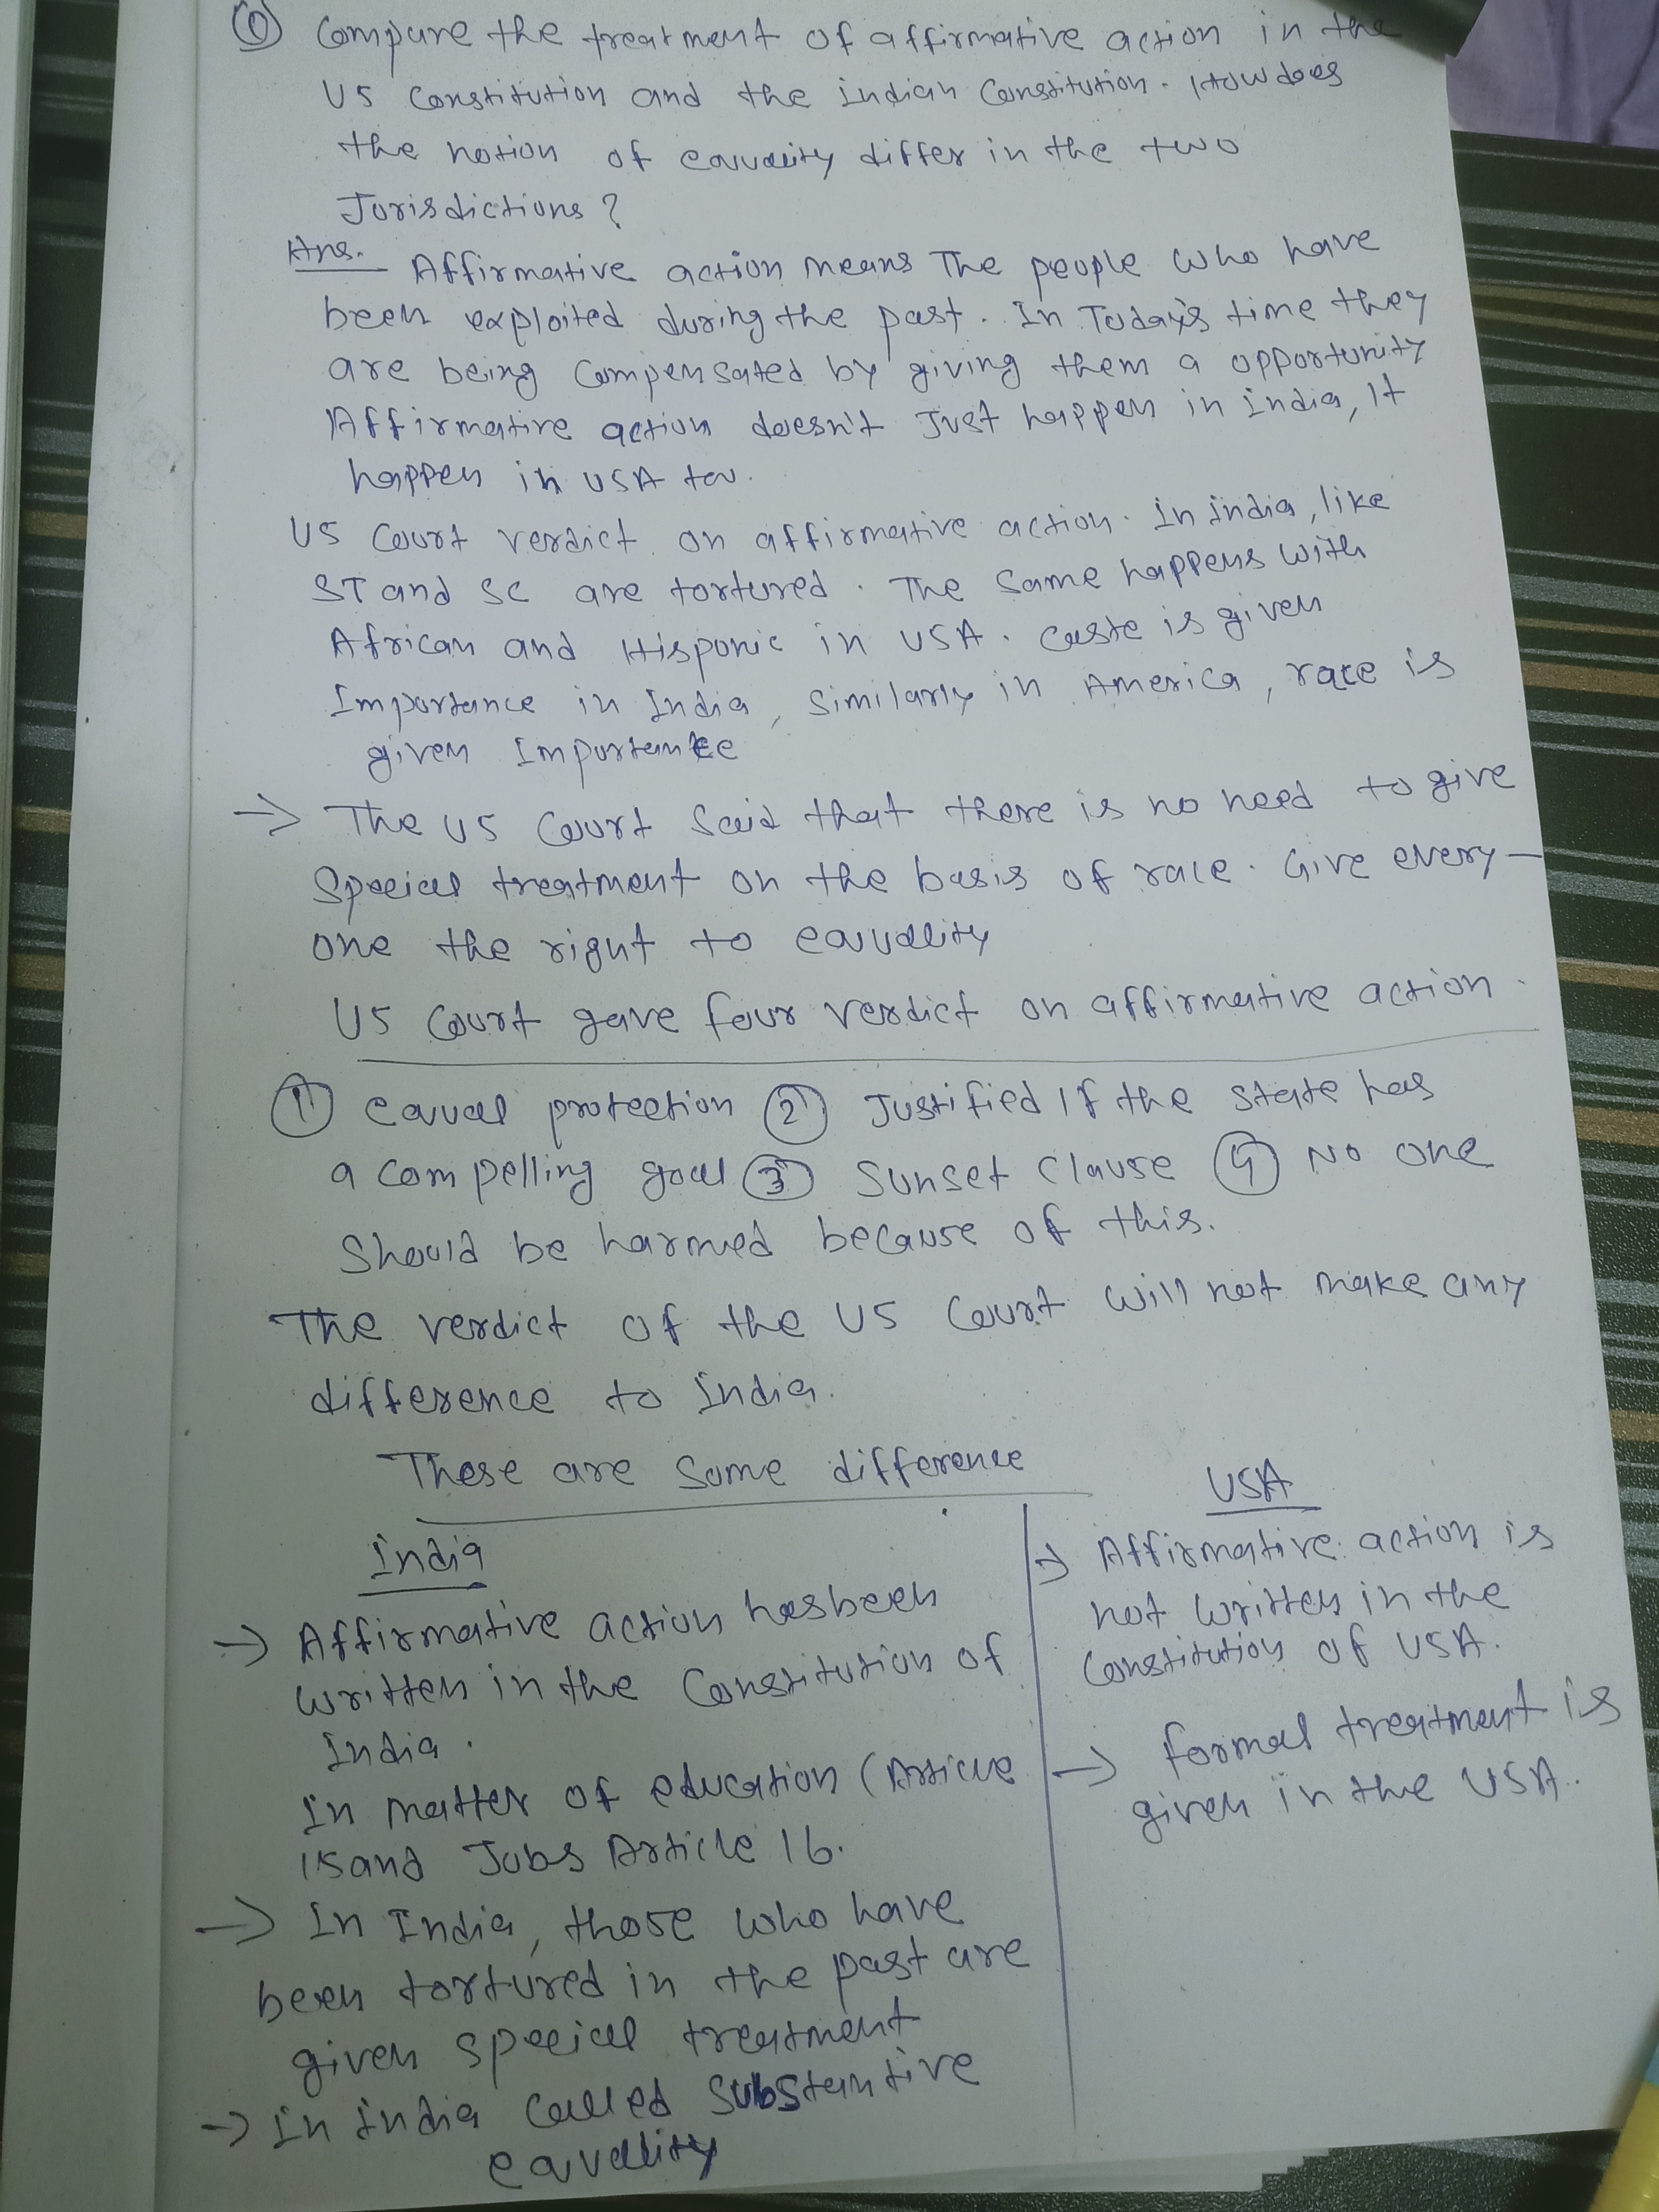 Q Compare the treatment of affirmative action in the
US Constitution and the indian Constitution. How does
the notion of equality differ in the two
Jurisdictions?
Ans. Affirmative action means The people who have
been exploited during the past. In Today's time they
are being Compensated by giving them a opportunity
Affirmative action doesn't Just happen in india, It
happen in USA too.
US Court verdict on affirmative action. In india, like
ST and SC are tortured. The Same happens with
African and Hisponic in USA. Caste is given
Importance in India, Similarly in America, race is
given Importance
→ The US Court Said that there is no need to give
Special treatment on the basis of race. Give every-
one the right to equality
US Court gave four verdict on affirmative action.
① equal protection ② Justified If the state has
a compelling goal ③ Sunset Clause ④ No one
Should be harmed because of this.
The verdict of the US Court will not make any
difference to India.
These are Some difference
India
→ Affirmative action has been
written in the Constitution of
India.
In matter of education (Article
15 and Jobs Article 16.
→ In India, those who have
been tortured in the past are
given special treatment
→ In india Called Substantive
equality
USA
→ Affirmative action is
not written in the
Constitution of USA.
→ formal treatment is
given in the USA.